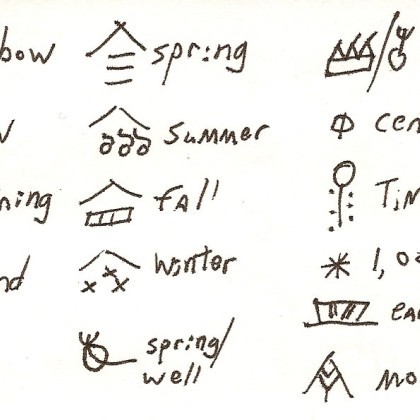 bow
spring
w
summer
cen
ning
fall
Tim
nd
winter
1,00
ear
spring/
well
mo